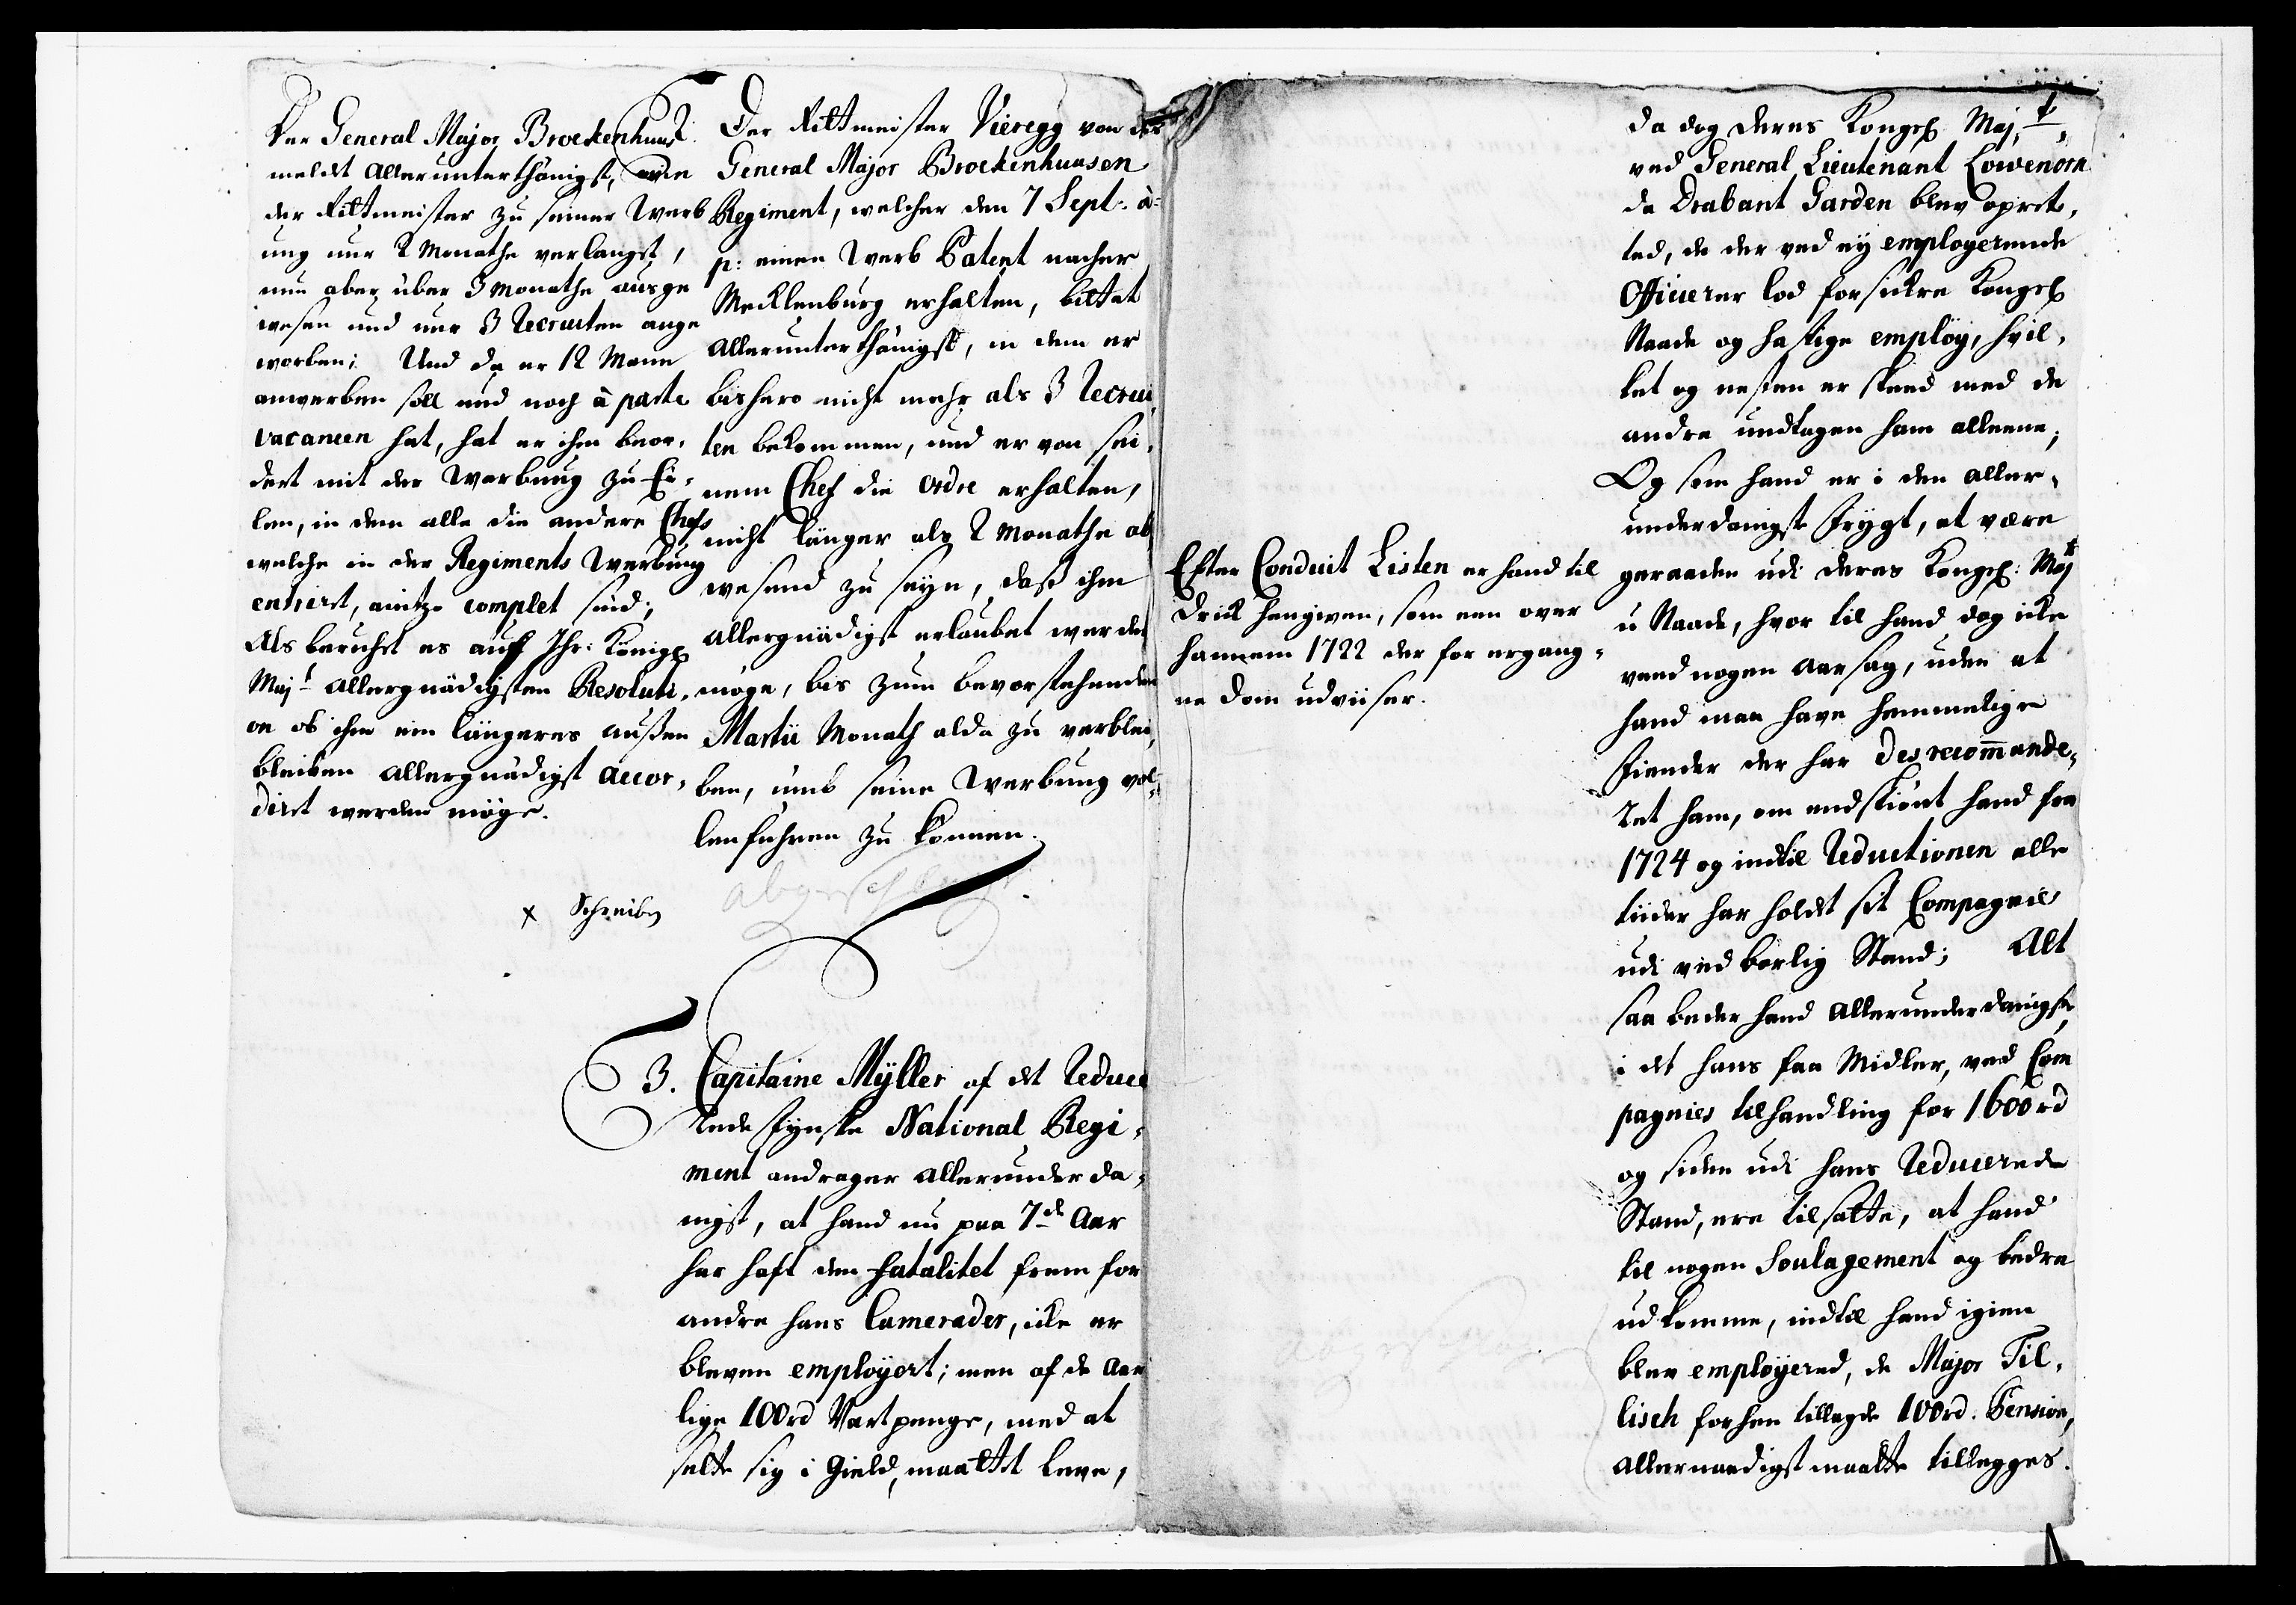 Der General Major Brockenhuus
meldet allerunterthänigst, wie
der Rittmeister zu seiner Werb
ung nur 2 Monathe verlangt,
nun aber über 3 Monathe ausge
wesen und nur 3 Recruten ange
worben; Und da er 12 Mann
anwerben soll und noch à parte
vacancen hat, hat er ihm beor,
dert mit der Werbung zu Ei,
len, in dem alle die andere Chefs
welche in der Regiments Werbung
entrirt, anitzo complet sind;
Als beruhet es auff Ihr: Königl
Majt allergnädigsten Resoluti,
on ob ihm ein längeres außen
bleiben allergnädigst accor,
dirt werden möge.
x Schreiben
Der Rittmeister Vieregg von der
General Major Brockenhuusen
Regiment, welcher den 7 Sept. à
p: einen Werb Patent nacher
Mecklenburg erhalten, bittet
allerunterthänigst, in dem er
bishero nicht mehr als 3 Recru,
ten bekommen, und er von sei,
nem Chef die Ordre erhalten,
nicht länger als 2 Monathe ab
wesend zu seyn, daß ihm
allergnädigst erlaubet werden
möge, bis zum bevorstehenden
Martii Monath alda zu verblei,
ben, umb seine Werbung vol,
lenfuhren zu können.
abgeschlagen.
3. Capitaine Mÿller af det Reduce
rede Fynske National Regi,
ment andrager allerunderda,
nigst, at hand nu paa 7de Aar
har haft den fatalitet frem for
andre hans Camerader, icke er
bleven employert; men af de Aar
lige 100rd Vartpenge, med at
sette sig i Gield, maattet leve,
Efter Conduit Listen er hand til
Drick hengiven, som een over
hannem 1722 der for ergang,
ne Dom udviiser.
da dog deres Kongel Majt,
ved General Lieutenant Lowenorn
da Drabant Garden blev opret,
ted, de der ved ey employerende
Officierer lod forsickre Kongel
Naade og hastige employ, hvil,
ket og nesten er skeed med de
andre undtagen ham alleene;
Og som hand er i den aller,
underdanigste Frygt, at være
geraaden udi deres Kongel: Majt
u Naade, hvor til hand dog icke
veed nogen Aarsag, uden at
hand maa have hemmelige
Fiender der har desrecommande,
ret ham, om endskiönt hand fra
1724 og indtil Reductionen alle
tiider har holdt sit Compagnie
udi ved borlig Stand; Alt
saa beder hand allerunderdanigst,
i det hans faa Midler, ved Com
pagnies tilhandling for 1600rd
og siden udi hans Reducerede
Stand, ere tilsatte, at hand
til nogen Soulagement og bedre
udkomme, indtil hand igien
blev employered, de Major Til,
lisch forhen tillagde 100rd. Pension,
allernaadigst maatte tillegges.